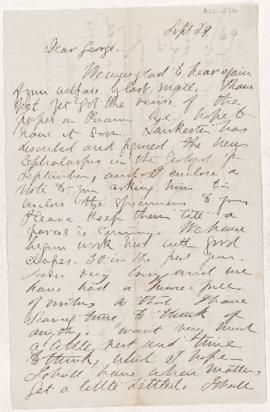 Sept 29
Dear George.
We were glad to hear again
of your welfare by last mail. I have
not yet got the revise of the
paper on but hope to
have it soon. Lankester has
described and figured the new
Cephalaspis in the Geologist for
September, and I enclose a
note to you asking him to
enclose the specimens to you
Please keep them till a
parcel is coming. We have
begun work here with good
classes. 30 in the first year.
Been very busy and we
have had a house full
of visitors so that I have
scarcely time to think of
anything. I want very much
a little rest and time
to think, which I hope
I shall have when matters
get a little settled. I shall